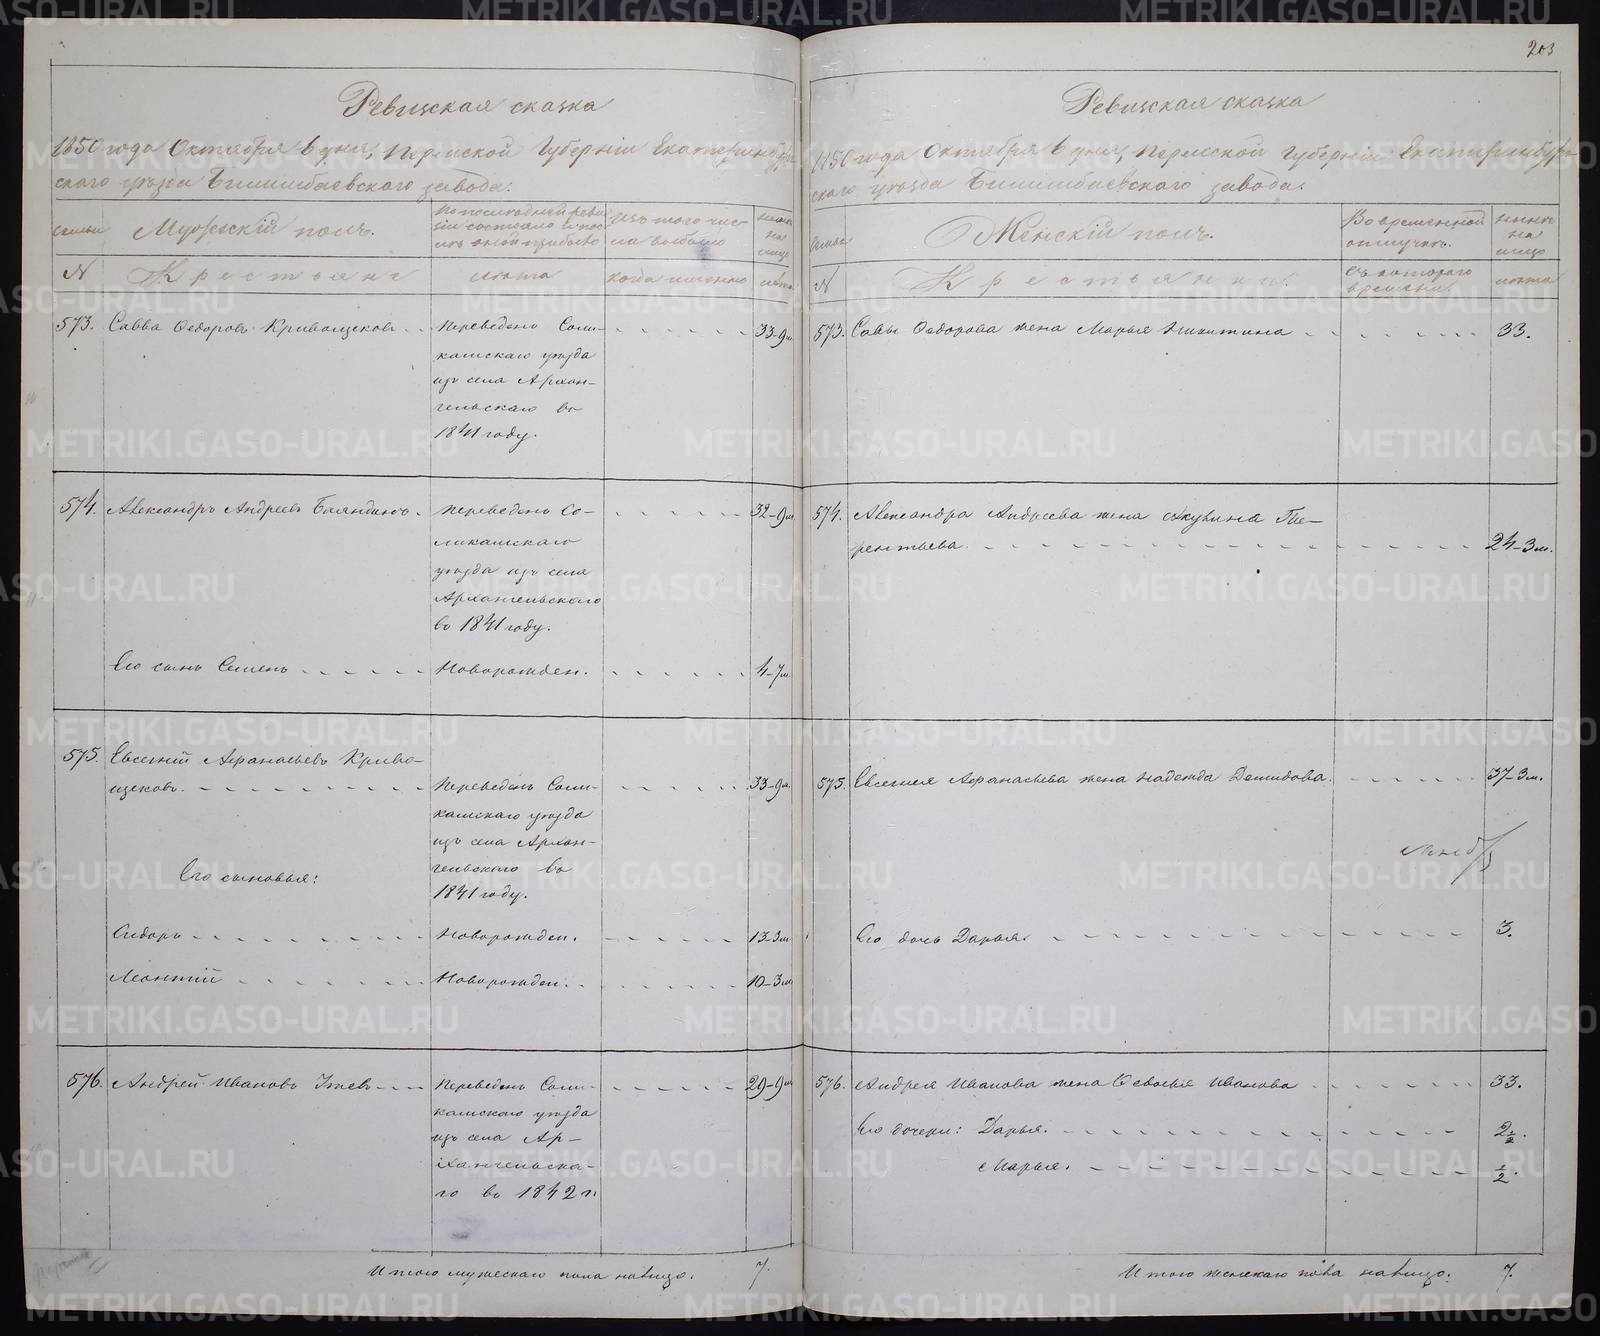 203
Ревизская сказка
1850 года Октября 6 дня, Пермской Губерніи Екатеринбург-
скаго уѣзда Билимбаевскаго завода.
семьи
Мужескій полъ.
По последней реви-
зіи состояло и пос-
лѣ оной прибыло
Изъ того чис-
ла выбыло
нынѣ
на
лицо
N
Крестьяне
лѣта
когда именно
лѣта
573. Савва Ѳедоровъ Кривощековъ
Переведенъ Соли-
камскаго уѣзда
изъ села Архан-
гельскаго въ
1841 году.
33-9м
574. Александръ Андреевъ Баяндинъ.
Переведенъ Со-
ликамскаго
уѣзда изъ села
Архангельскаго
въ 1841 году.
32-9м
Его сынъ Семенъ
Новорожден.
4-7м
575. Евсегній Афанасьевъ Криво-
щековъ.
Переведенъ Соли-
камскаго уѣзда
изъ села Архан-
гельскаго въ
1841 году.
33-9м.
Его сыновья:
Сидоръ
Новорожден.
13-3м.
Леонтій
Новорожден.
10-3м
576. Андрей Ивановъ
Переведенъ Соли-
камскаго уѣзда
изъ села Ар-
хангельска-
го въ 1842 г.
29-9м
Итого мужескаго пола налицо. 7.
Ревизская сказка
1850 года Октября 6 дня, Пермской Губерніи Екатеринбург-
скаго уѣзда Билимбаевскаго завода.
семьи
Женскій полъ.
Во временной
отлучкѣ.
нынѣ
на
лицо
N
Крестьянки.
съ котораго
времени
лѣта
573. Савы Ѳедорова жена Марья Никитина
33.
574. Александра Андреева жена Акулина Те-
рентьева.
24-3м.
575. Евсегнея Афанасьева жена Надежда Демидова.
37-3м.
Его дочь Дарья.
3.
576. Андрея Иванова жена Ѳедосья Иванова
33.
Его дочери: Дарья.
2½.
Марья.
½.
Итого женскаго пола налицо. 7.
METRIKI.GASO-URAL.RU